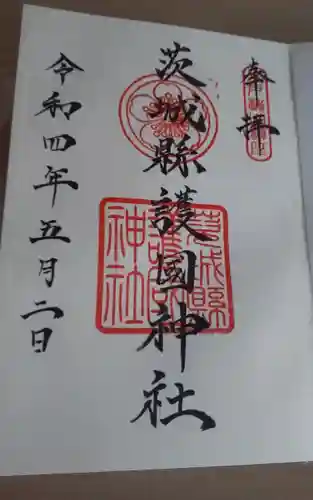 奉拝
茨城縣護國神社
令和四年五月二日
茨城縣
護國
神社